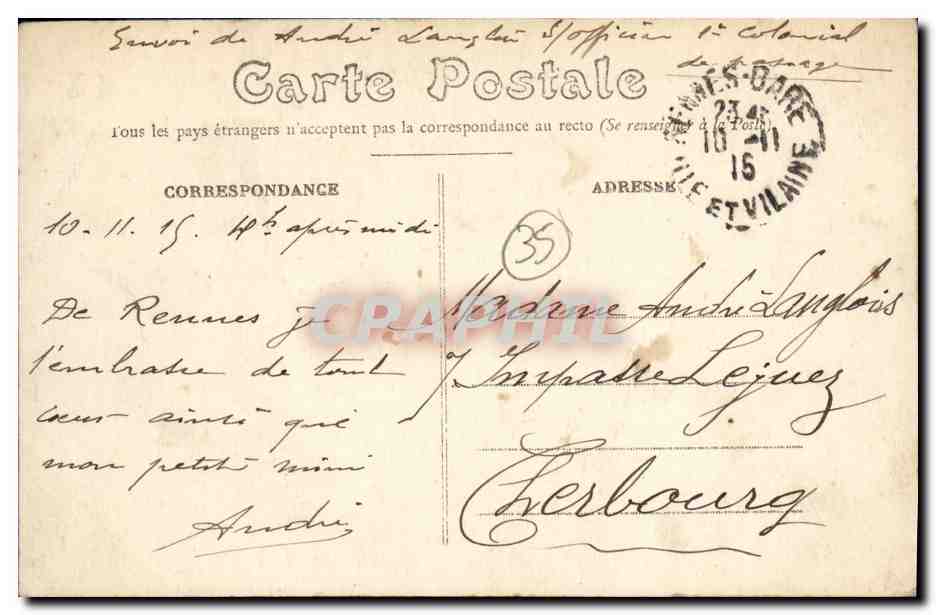 Envoi de André Langlois S/officier 1er Colonial
de passage
Carte Postale
Tous les pays étrangers n'acceptent pas la correspondance au recto (Se renseigner à la Poste)
RENNES-GARE
23
10-11
15
ILLE ET VILAINE
CORRESPONDANCE
10-11-15. 4h après midi
De Rennes je
t'embrasse de tout
cœur ainsi que
mon petit mimi
André
ADRESSE
35
Madame André Langlois
7 Impasse Lejuez
Cherbourg
CPAPHIL